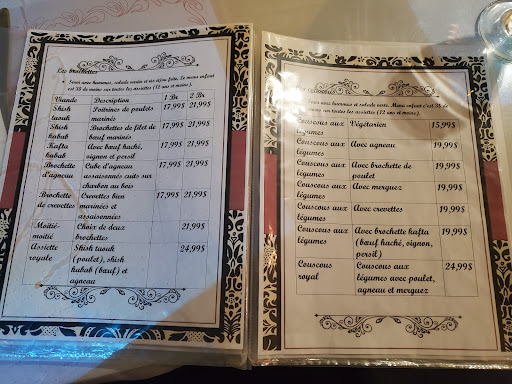 Les brochettes
Servi avec hoummos, salade verte et riz
et sa frite. Le menu enfant
est 3$ de moins sur toutes les assiettes (12 ans et moins).
Viande Description 1 Br 2 Br
Shish Poitrines de poulets 17,99$ 21,99$
taouk marinés
Shish Brochettes de filet de 17,99$ 21,99$
kabab bœuf marinés
Kafta Avec bœuf haché, 17,99$ 21,99$
kabab oignon et persil
Brochette Cube d'agneau 17,99$ 21,99$
d'agneau assaisonnés cuits sur
charbon au bois
Brochette Crevettes bien 17,99$ 21,99$
de crevettes marinées et
assaisonnées
Moitié- Choix de deux 21,99$
moitié brochettes
Assiette Shish taouk 24,99$
royale (poulet), shish
kabab (bœuf) et
agneau
Servi avec hoummos et salade verte. Menu enfant c'est 3$ de
moins sur toutes les assiettes (12 ans et moins).
Couscous aux Végétarien 15,99$
légumes
Couscous aux Avec agneau 19,99$
légumes
Couscous aux Avec brochette de 19,99$
légumes poulet
Couscous aux Avec merguez 19,99$
légumes
Couscous aux Avec crevettes 19,99$
légumes
Couscous aux Avec brochette kafta 19,99$
légumes (bœuf haché, oignon,
persil)
Couscous Couscous aux 24,99$
royal légumes avec poulet,
agneau et merguez